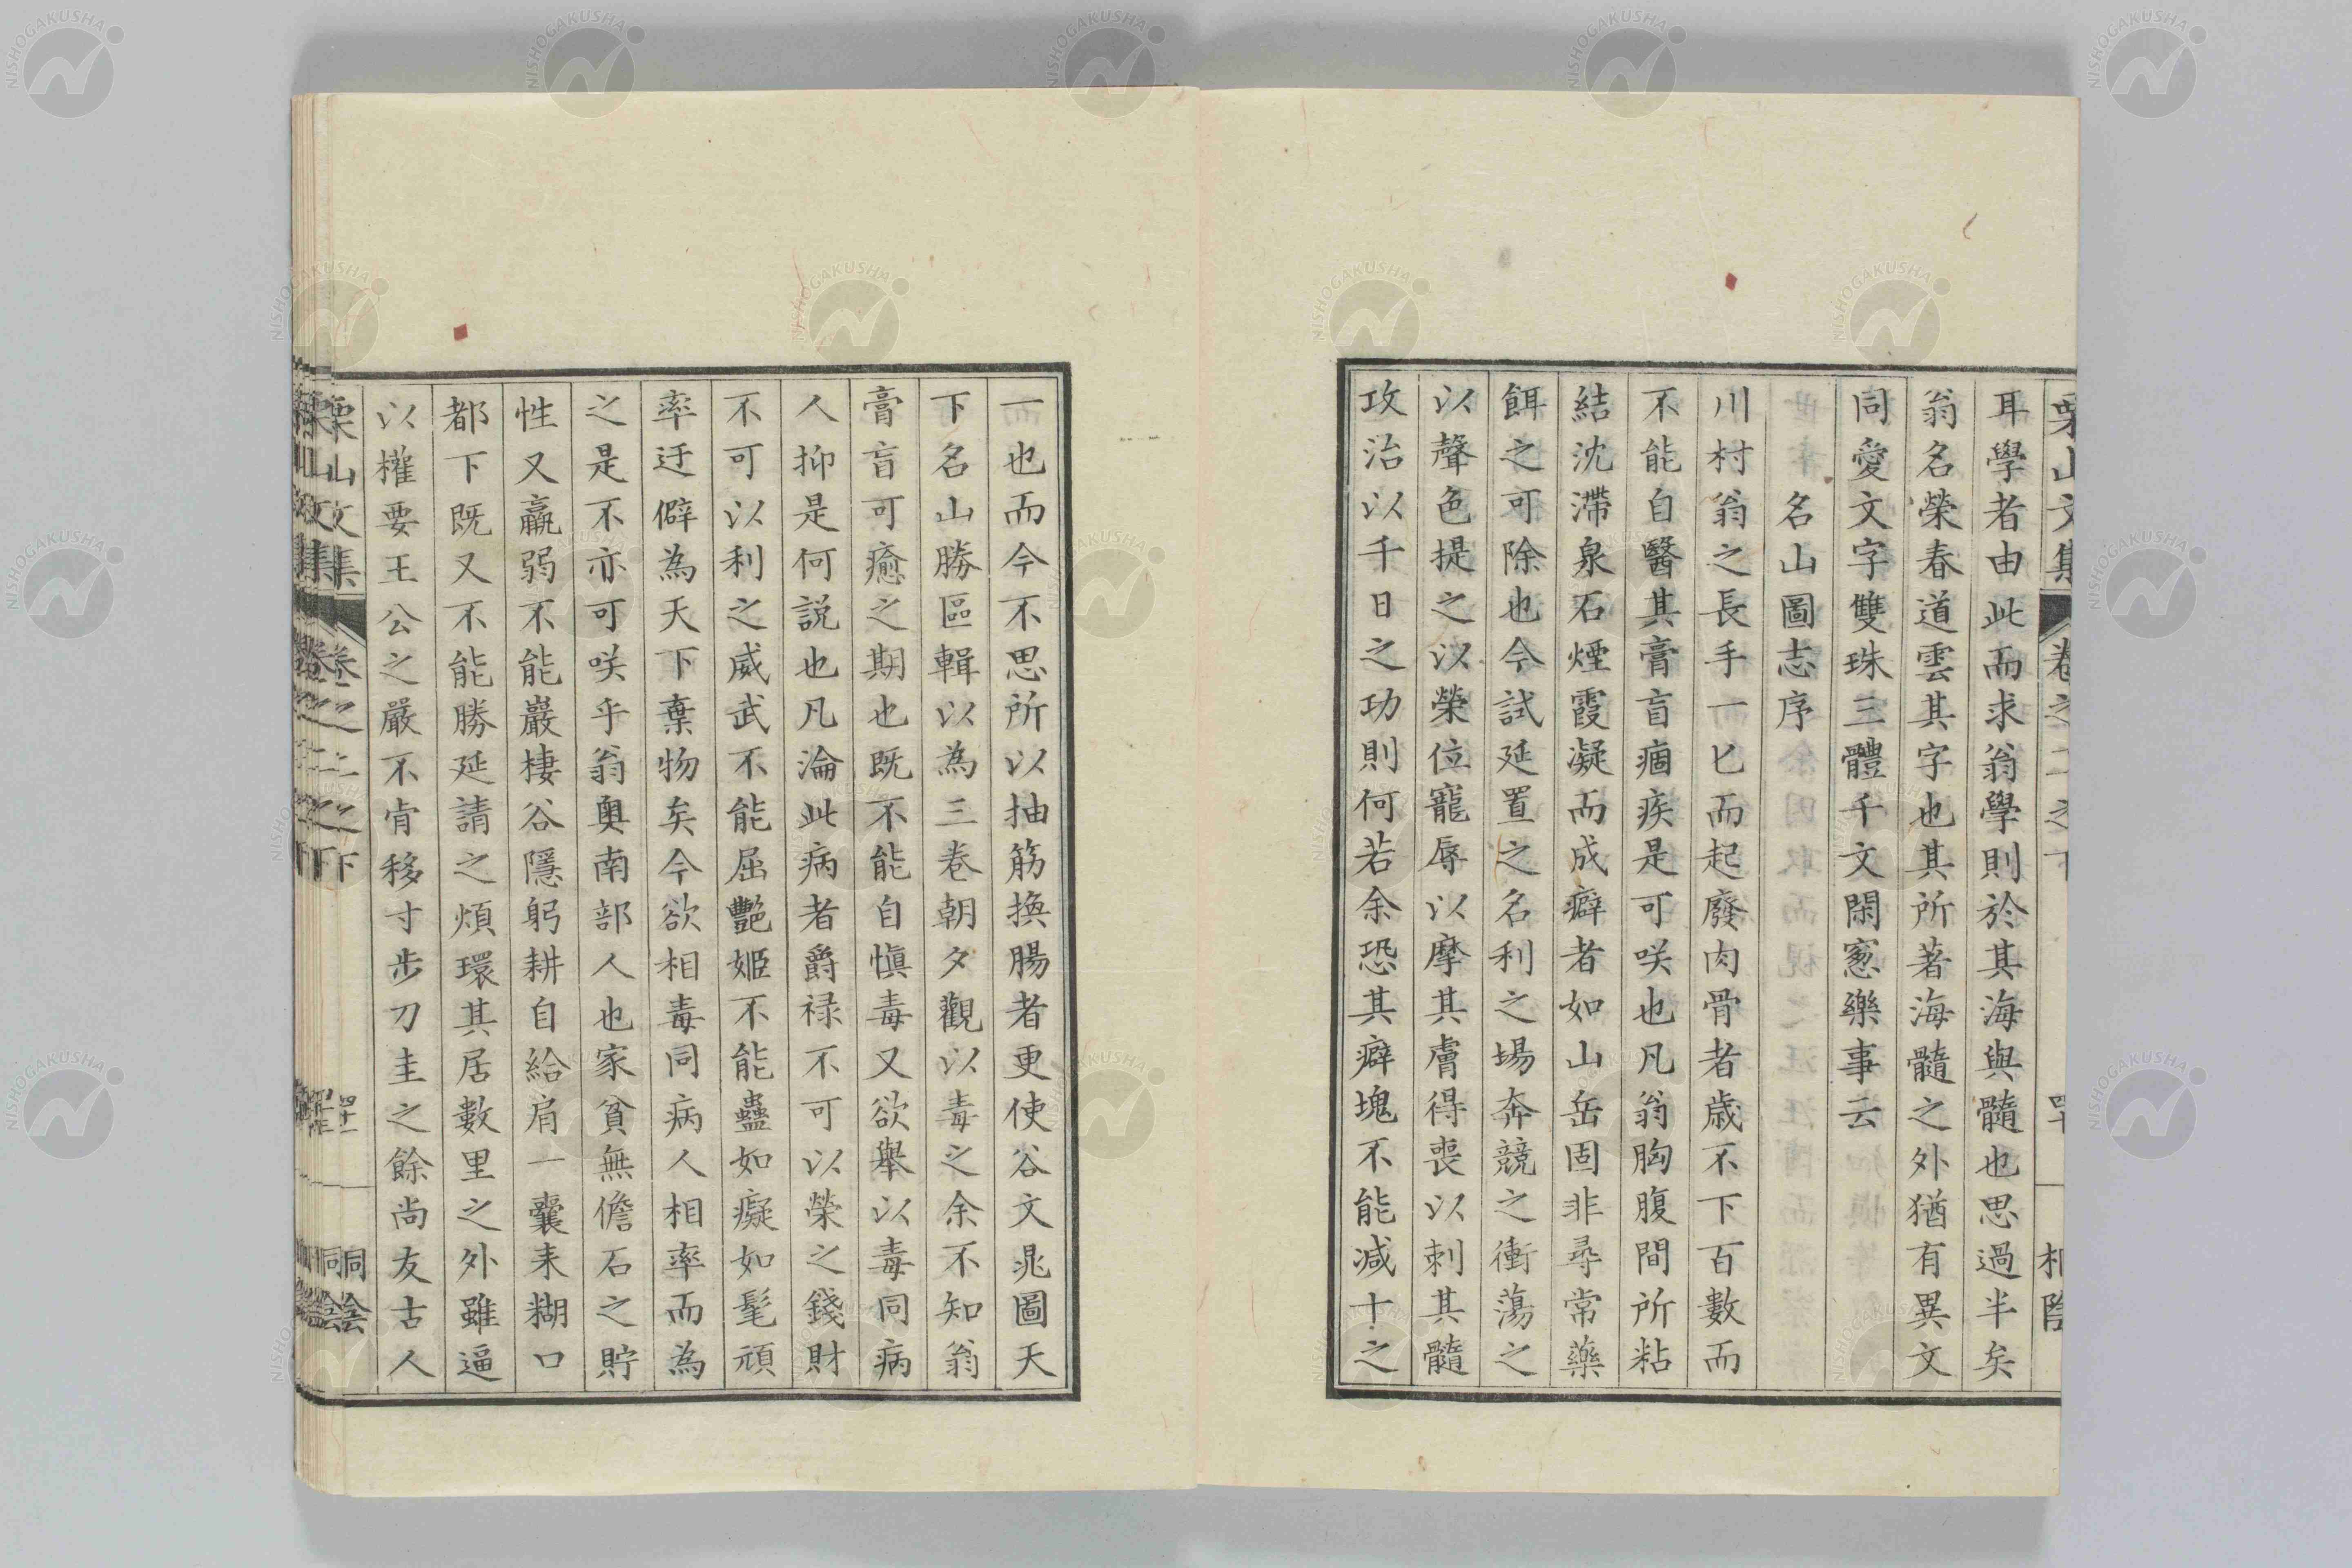 耳學者由此而求翁學則於其海與髓也思過半矣
翁名榮春道雲其字也其所著海髓之外猶有異文
同愛文字雙珠三體千文閑窻樂事云
名山圖志序
川村翁之長手一匕而起廢肉骨者歳不下百數而
不能自醫其膏盲痼疾是可咲也凡翁胸腹間所粘
結沈滯泉石煙霞凝而成癖者如山岳固非尋常藥
餌之可除也今試延置之名利之場奔競之衝蕩之
以聲色提之以榮位寵辱以摩其膚得喪以刺其髓
攻治以千日之功則何若余恐其癖塊不能減十之
一也而今不思所以抽筋換腸者更使谷文兆圖天
下名山勝區輯以為三巻朝夕觀以毒之余不知翁
膏盲可癒之期也既不能自慎毒又欲舉以毒同病
人抑是何説也凡淪此病者爵禄不可以榮之錢財
不可以利之威武不能屈艷姬不能蠱如癡如髦頑
率迂僻為天下棄物矣今欲相毒同病人相率而為
之是不亦可咲乎翁奧南部人也家貧無儋石之貯
性又羸弱不能巖棲谷隱躬耕自給肩一囊耒糊口
都下既又不能勝延請之煩環其居數里之外雖逼
以權要王公之嚴不肯移寸步刀圭之餘尚友古人
栗山文集 卷之二之下
NISHOGAKUSHA